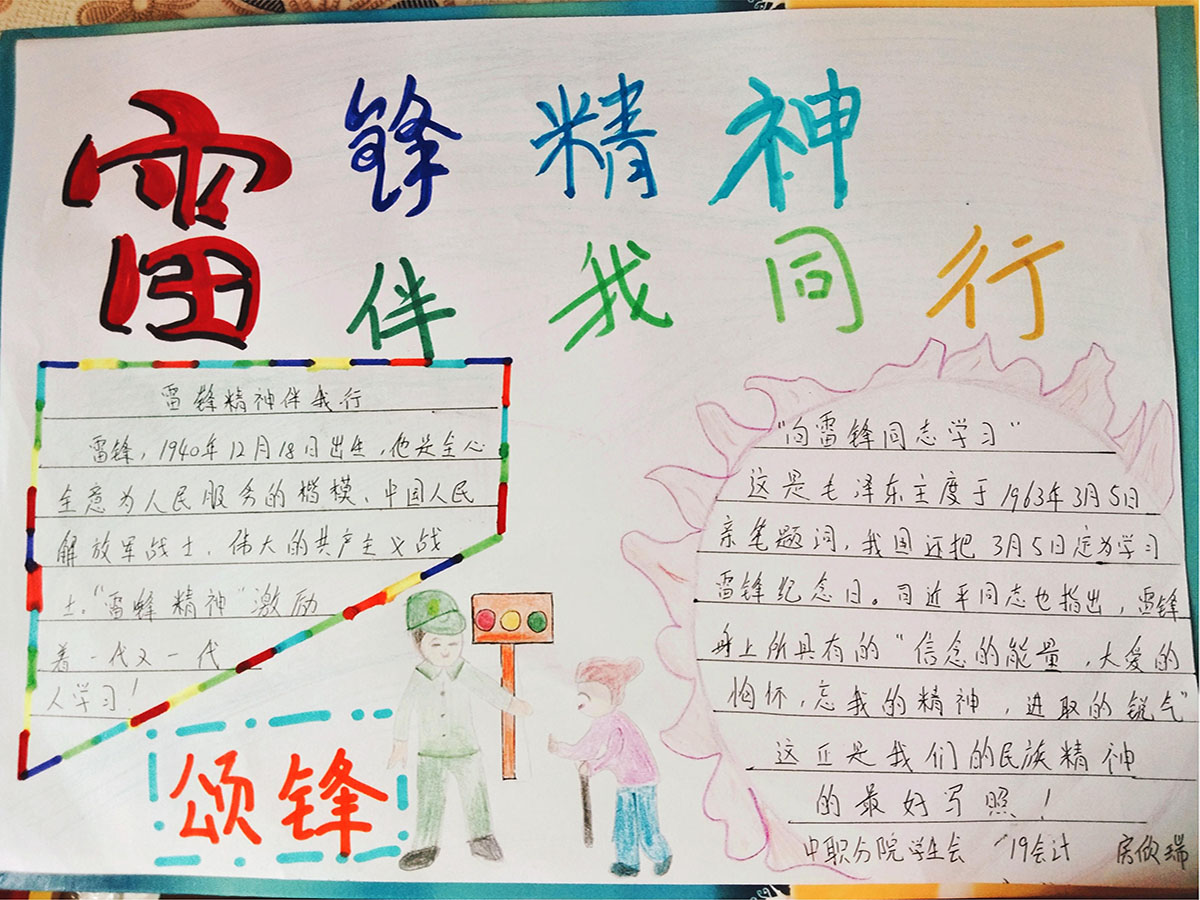 雷锋精神
伴我同行
雷锋精神伴我行
雷锋，1940年12月18日出生，他是全心
全意为人民服务的楷模、中国人民
解放军战士，伟大的共产主义战
士。“雷锋精神”激励
着一代又一代
人学习！
颂锋
“向雷锋同志学习”
这是毛泽东主度于1963年3月5日
亲笔题词，我国还把3月5日定为学习
雷锋纪念日。习近平同志也指出，雷锋
身上所具有的“信念的能量，大爱的
胸怀，忘我的精神，进取的锐气”
这正是我们的民族精神
的最好写照！
中职分院学生会 19会计 房欣瑞